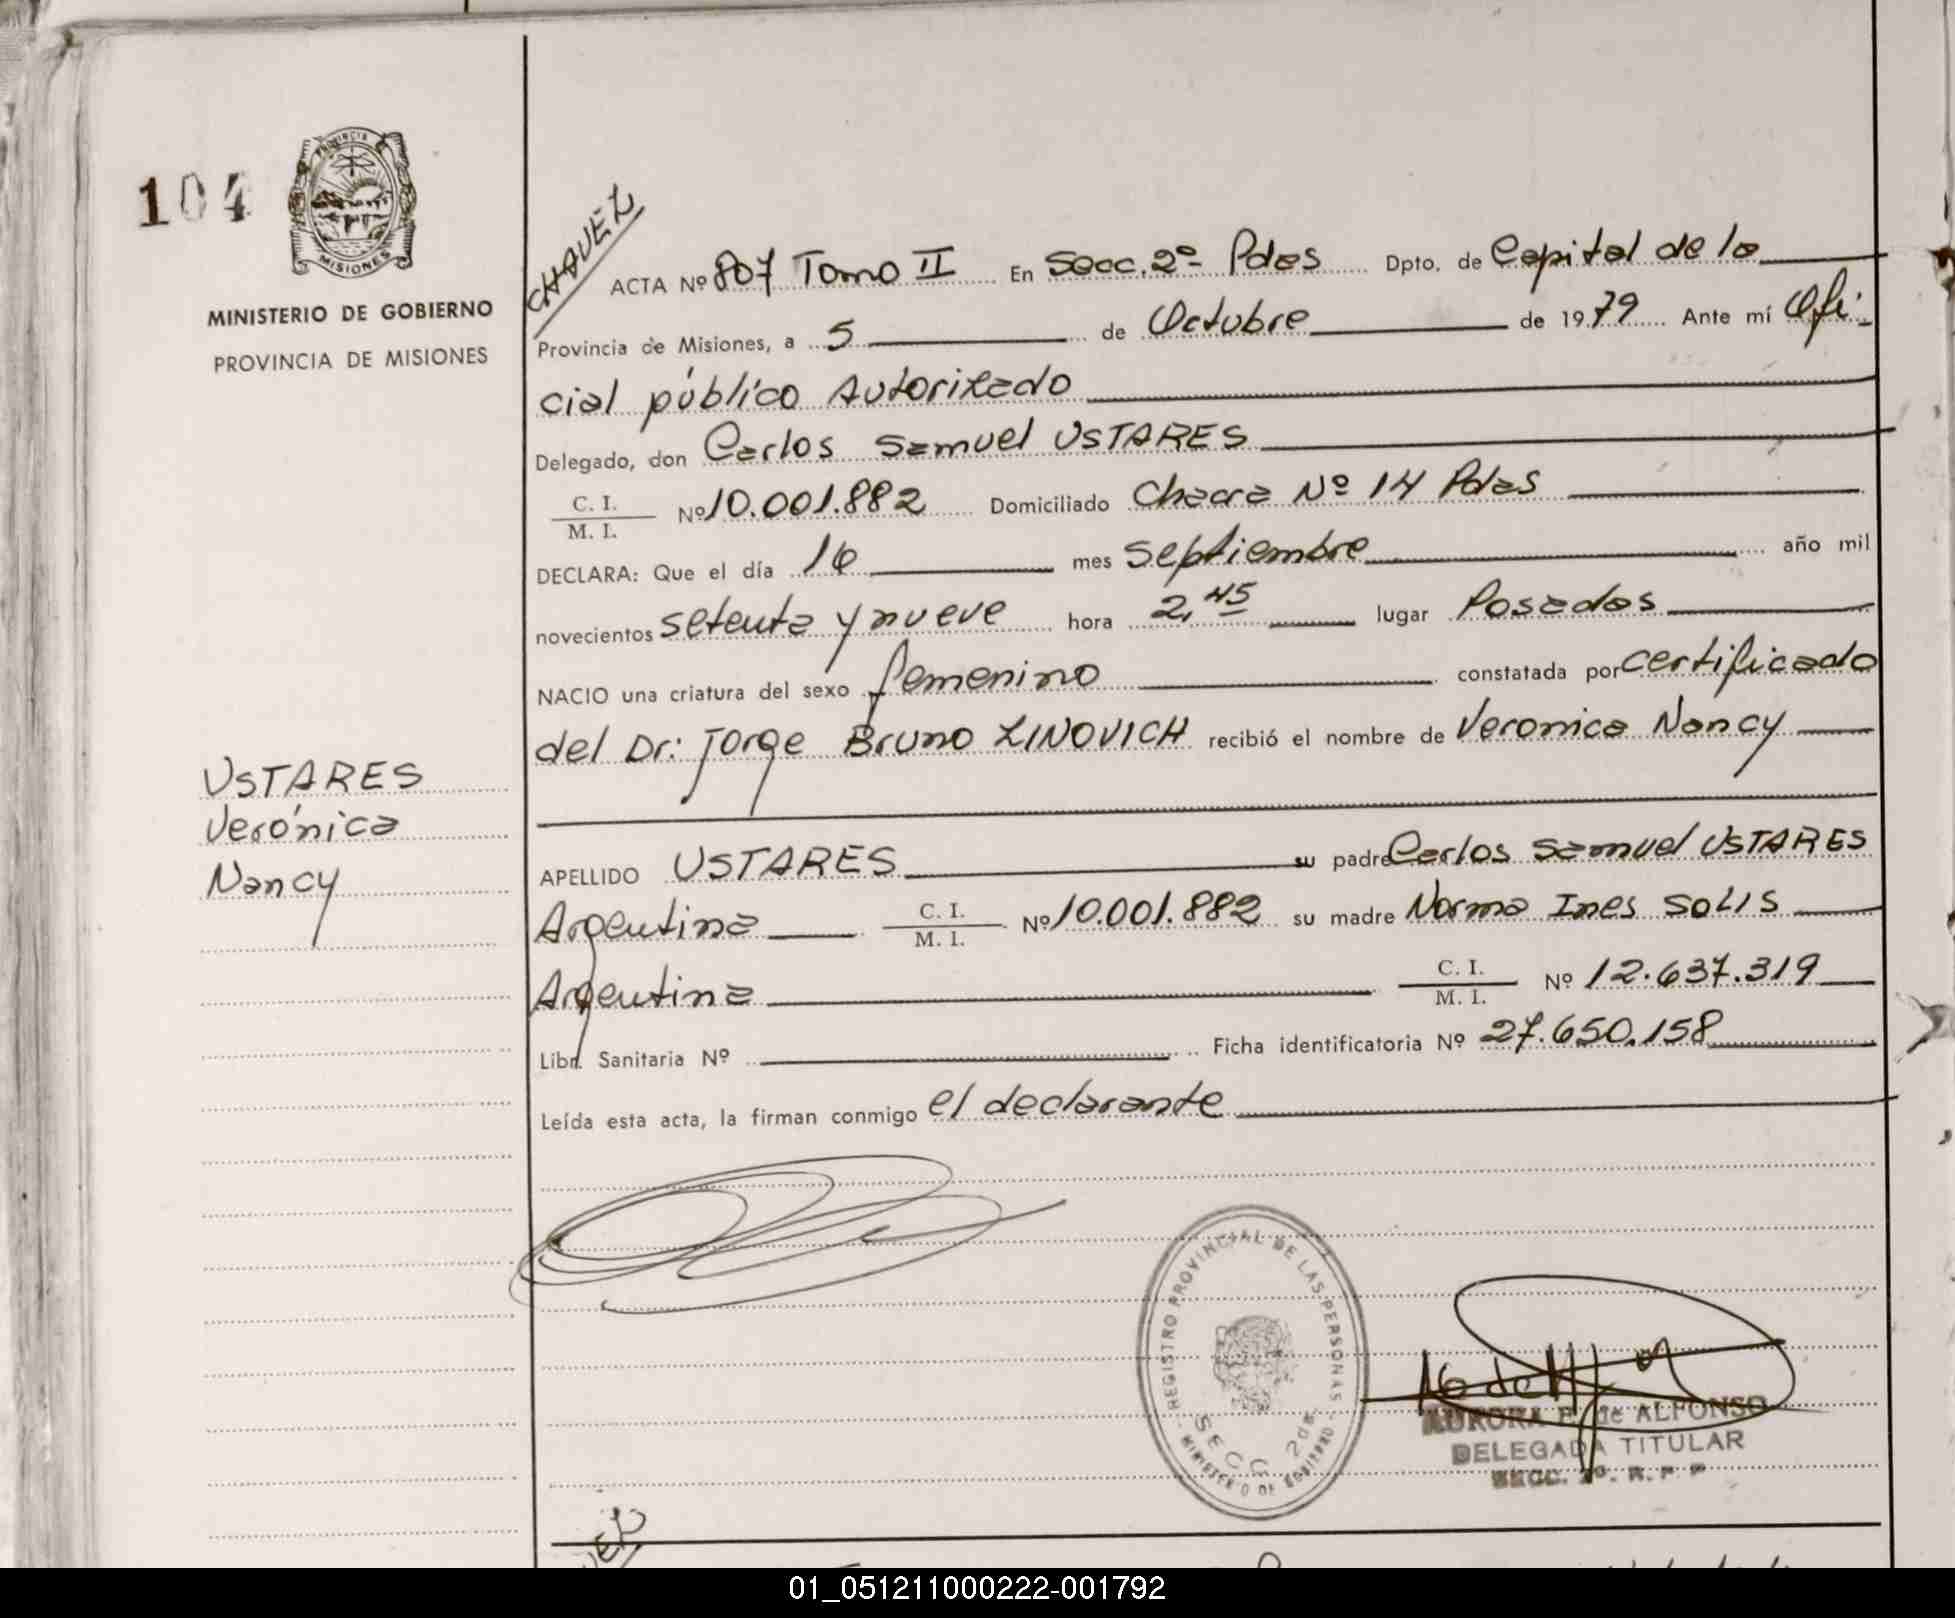 104
PROVINCIA
MISIONES
MINISTERIO DE GOBIERNO
PROVINCIA DE MISIONES
CHAVEZ
ACTA Nº 807 Tomo II En Secc. 2º Pdas Dpto. de Capital de la
Provincia de Misiones, a 5 de Octubre de 1979 Ante mí Ofi
cial público Autorizado
Delegado, don Carlos Samuel USTARES
C. I.
M. I. Nº 10.001.882 Domiciliado Chacra Nº 14 Pdas
DECLARA: Que el día 16 mes Septiembre año mil
novecientos setenta y nueve hora 2,45 lugar Posadas
NACIO una criatura del sexo femenino constatada por certificado
del Dr: Jorge Bruno ZINOVICH recibió el nombre de Veronica Nancy
USTARES
Verónica
Nancy
APELLIDO USTARES su padre Carlos Samuel USTARES
Argentina C. I.
M. I. Nº 10.001.882 su madre Norma Ines SOLIS
Argentina C. I.
M. I. Nº 12.637.319
Libr. Sanitaria Nº Ficha identificatoria Nº 27.650.158
Leída esta acta, la firman conmigo el declarante
REGISTRO PROVINCIAL DE LAS PERSONAS
SECC 2da.
MINISTERIO DE GOBIERNO
AURORA de ALFONSO
DELEGADA TITULAR
SECC. 2º. R. P. P
01_051211000222-001792